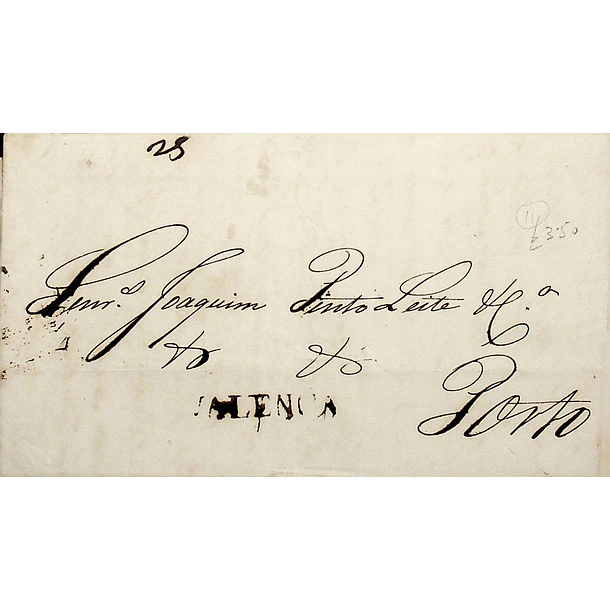 25
11
£3.50
Senrs. Joaquim Pinto Leite & Ca
& &
VALENCA
Porto